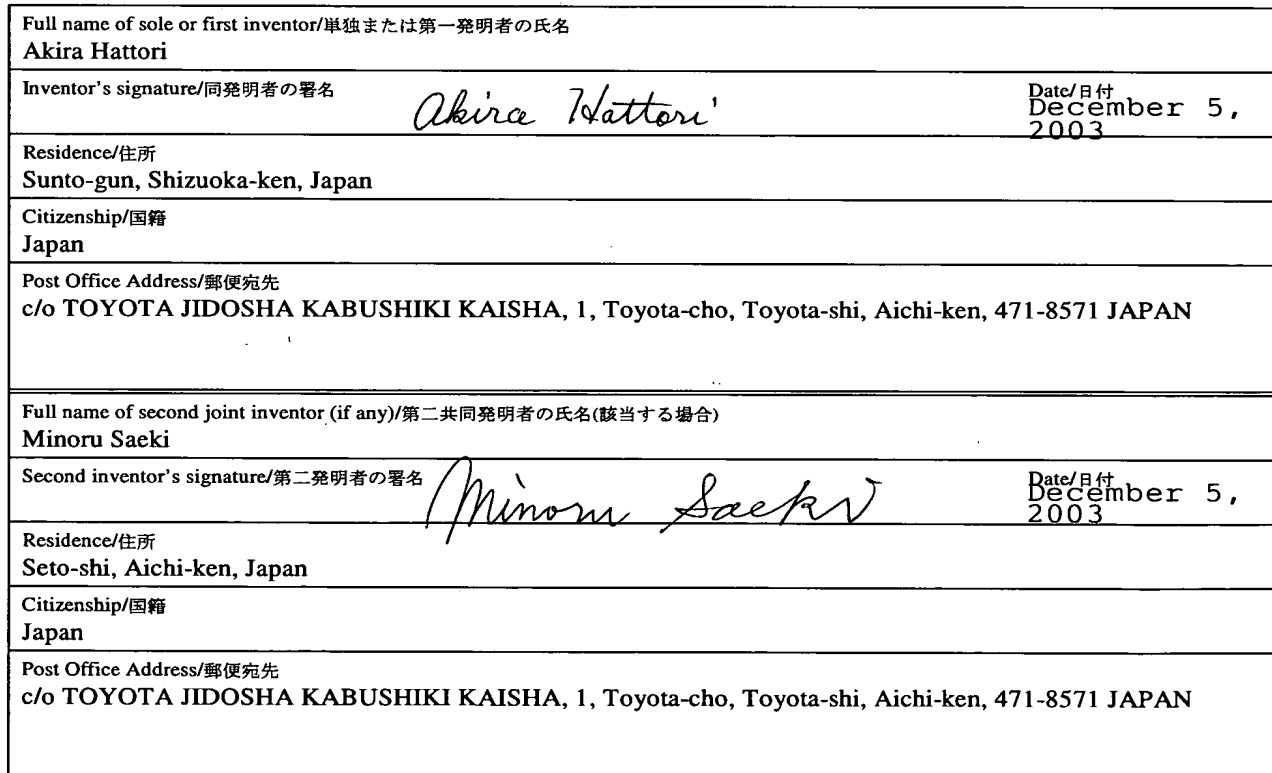 Full name of sole or first inventor/単独または第一発明者の氏名
Akira Hattori
Inventor's signature/同発明者の署名
Akira Hattori
Date/日付
December 5,
2003
Residence/住所
Sunto-gun, Shizuoka-ken, Japan
Citizenship/国籍
Japan
Post Office Address/郵便宛先
c/o TOYOTA JIDOSHA KABUSHIKI KAISHA, 1, Toyota-cho, Toyota-shi, Aichi-ken, 471-8571 JAPAN
Full name of second joint inventor (if any)/第二共同発明者の氏名(該当する場合)
Minoru Saeki
Second inventor's signature/第二発明者の署名
Minoru Saeki
Date/日付
December 5,
2003
Residence/住所
Seto-shi, Aichi-ken, Japan
Citizenship/国籍
Japan
Post Office Address/郵便宛先
c/o TOYOTA JIDOSHA KABUSHIKI KAISHA, 1, Toyota-cho, Toyota-shi, Aichi-ken, 471-8571 JAPAN